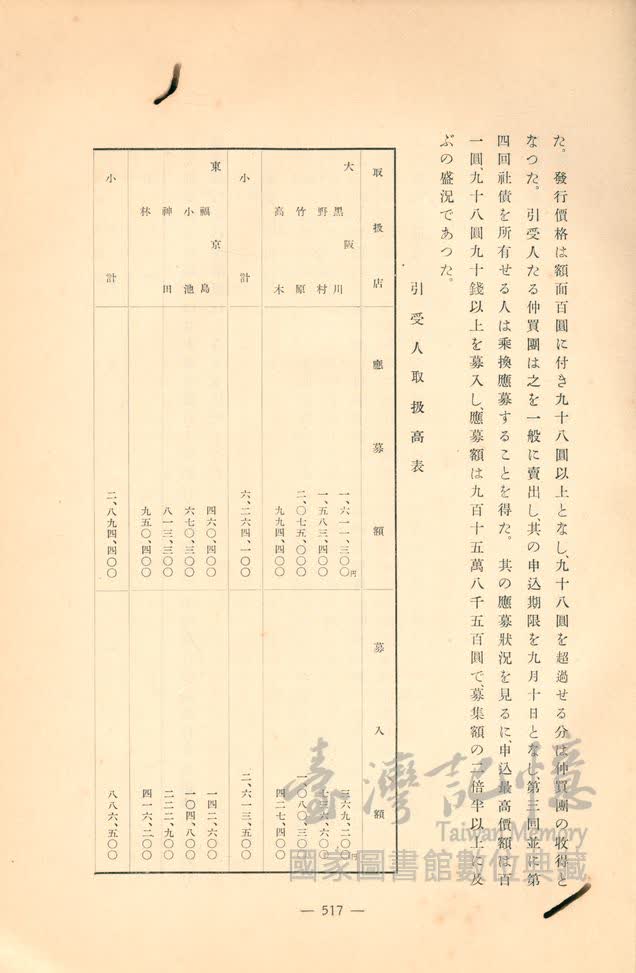 た。發行價格は額面百圓に付き九十八圓以上となし、九十八圓を超過せる分は仲買團の收得と
なつた。引受人たる仲買團は之を一般に賣出し、其の申込期限を九月十日となし、第三回並に第
四回社債を所有せる人は乘換應募することを得た。其の應募狀況を見るに、申込最高價額は百
一圓、九十八圓九十錢以上を募入し、應募額は九百十五萬八千五百圓で、募集額の二倍半以上に及
ぶの盛況であつた。
引受人取扱高表
取扱店 應募額 募入額
大阪
黒川 一、六一一、三〇〇円 三六九、二〇〇円
野村 一、五八三、四〇〇 七三六、六〇〇
竹原 二、〇七五、〇〇〇 一、〇八〇、三〇〇
高木 九九四、四〇〇 四二七、四〇〇
小計 六、二六四、一〇〇 二、六一三、五〇〇
東京
福島 四六〇、四〇〇 一四二、六〇〇
小池 六七〇、三〇〇 一〇四、八〇〇
神田 八一三、三〇〇 二二二、九〇〇
林 九五〇、四〇〇 四一六、二〇〇
小計 二、八九四、四〇〇 八八六、五〇〇
臺灣記憶
Taiwan Memory
國家圖書館數位典藏
— 517 —